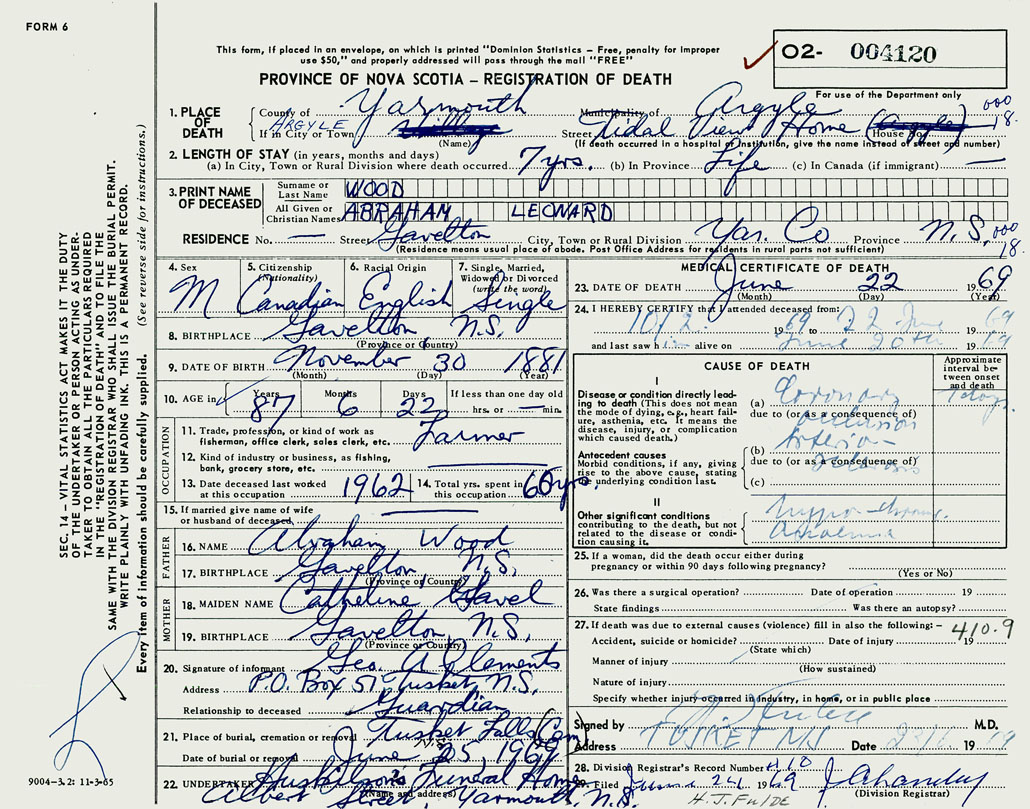 FORM 6
This form, if placed in an envelope, on which is printed "Dominion Statistics – Free, penalty for improper
use $50," and properly addressed will pass through the mail "FREE"
O2- 004120
For use of the Department only
PROVINCE OF NOVA SCOTIA – REGISTRATION OF DEATH
1. PLACE OF DEATH
County of Yarmouth Municipality of Argyle 000
If in City or Town ARGYLE (Name) Street Tidal View Home (Argyle) House No. 18.
(If death occurred in a hospital or institution, give the name instead of street and number)
2. LENGTH OF STAY (in years, months and days)
(a) In City, Town or Rural Division where death occurred 7 yrs. (b) In Province Life (c) In Canada (if immigrant) —
3. PRINT NAME OF DECEASED
Surname or Last Name WOOD
All Given or Christian Names ABRAHAM LEONARD
RESIDENCE No. — Street Gavelton City, Town or Rural Division Yar. Co Province N.S. 000
(Residence means usual place of abode. Post Office Address for residents in rural parts not sufficient) 18.
4. Sex M
5. Citizenship (Nationality) Canadian
6. Racial Origin English
7. Single, Married, Widowed or Divorced (write the word) Single
8. BIRTHPLACE Gavelton N.S.
(Province or Country)
9. DATE OF BIRTH November 30 1881
(Month) (Day) (Year)
10. AGE in Years 87 Months 6 Days 22 If less than one day old
hrs. or — min.
OCCUPATION
11. Trade, profession, or kind of work as
fisherman, office clerk, sales clerk, etc. Farmer
12. Kind of industry or business, as fishing,
bank, grocery store, etc.
13. Date deceased last worked at this occupation 1962
14. Total yrs. spent in this occupation 60 yrs.
15. If married give name of wife
or husband of deceased
FATHER
16. NAME Abraham Wood
17. BIRTHPLACE Gavelton N.S.
(Province or Country)
MOTHER
18. MAIDEN NAME Catheline Gavel
19. BIRTHPLACE Gavelton, N.S.
(Province or Country)
20. Signature of informant Geo. A Clements
Address P.O. Box 51 Tusket, N.S.
Relationship to deceased Guardian
21. Place of burial, cremation or removal Tusket Falls (Cem) N.S.
Date of burial or removal June 25, 1969
22. UNDERTAKER Huskilson's Funeral Home
(Name and address)
Albert Street Yarmouth, N.S.
MEDICAL CERTIFICATE OF DEATH
23. DATE OF DEATH June 22 1969
(Month) (Day) (Year)
24. I HEREBY CERTIFY that I attended deceased from:
1969 to 22 June 1969
and last saw him alive on June 20th 19
CAUSE OF DEATH
Approximate interval between onset and death
I
Disease or condition directly leading to death (This does not mean
the mode of dying, e.g., heart failure, asthenia, etc. It means the
disease, injury, or complication
which caused death.)
(a) Coronary
due to (or as a consequence of)
occlusion
Antecedent causes
Morbid conditions, if any, giving
rise to the above cause, stating
the underlying condition last.
(b) Arterio-
due to (or as a consequence of)
(c)
II
Other significant conditions
contributing to the death, but not
related to the disease or condition causing it.
25. If a woman, did the death occur either during
pregnancy or within 90 days following pregnancy?
(Yes or No)
26. Was there a surgical operation? Date of operation 19
State findings Was there an autopsy?
27. If death was due to external causes (violence) fill in also the following: – 410.9
Accident, suicide or homicide? Date of injury 19
(State which)
Manner of injury
(How sustained)
Nature of injury
Specify whether injury occurred in industry, in home, or in public place
Signed by M.D.
Address TUSKET NS Date 19
28. Division Registrar's Record Number
29. Filed June 24 1969
(Division Registrar)
SEC. 14 – VITAL STATISTICS ACT MAKES IT THE DUTY
OF THE UNDERTAKER OR PERSON ACTING AS UNDERTAKER
TO OBTAIN ALL THE PARTICULARS REQUIRED
IN THE "REGISTRATION OF DEATH" AND TO FILE THE
SAME WITH THE DIVISION REGISTRAR WHO SHALL ISSUE THE BURIAL PERMIT.
WRITE PLAINLY WITH UNFADING INK. THIS IS A PERMANENT RECORD.
Every item of information should be carefully supplied. (See reverse side for instructions.)
9004-3.2: 11-3-65